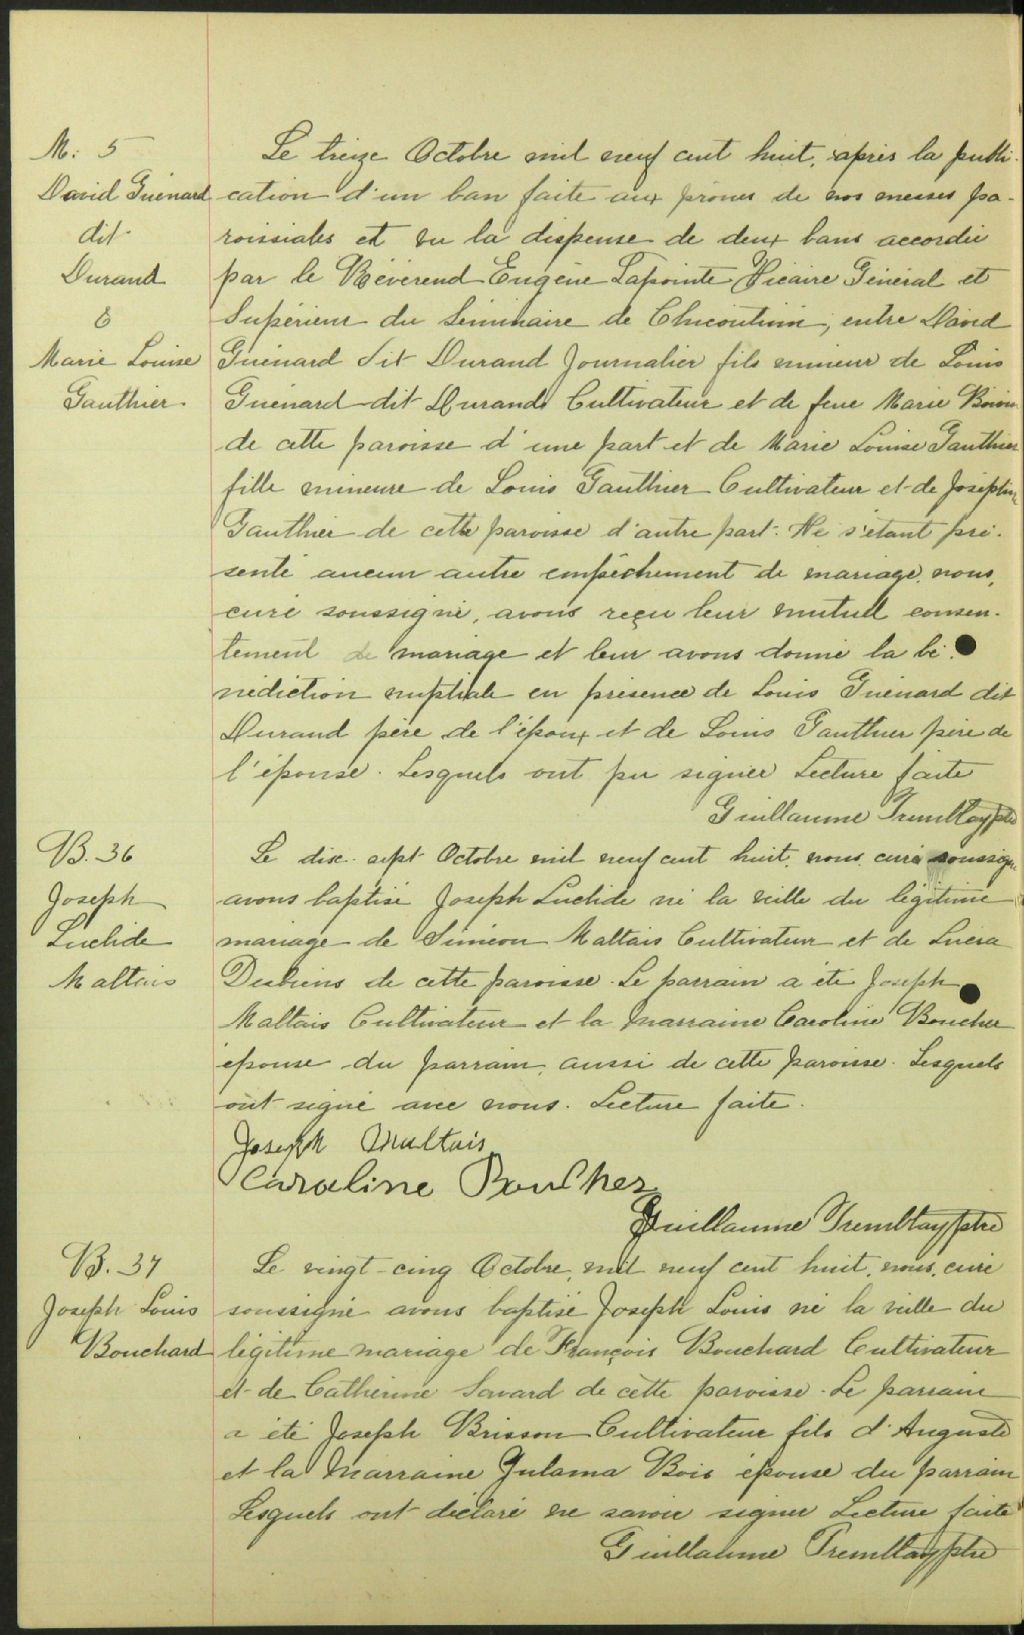 M. 5
David Guénard
dit
Durand
&
Marie Louise
Gauthier.
Le treize Octobre mil neuf cent huit, après la publi-
cation d'un ban faite aux prônes de nos messes pa-
roissiales et vu la dispense de deux bans accordée
par le Révérend Eugène Lapointe Vicaire Général et
Supérieur du Séminaire de Chicoutimi, entre David
Guénard dit Durand Journalier fils mineur de Louis
Guénard dit Durand Cultivateur et de feue Marie Boivin
de cette paroisse d'une part et de Marie Louise Gauthier
fille mineure de Louis Gauthier Cultivateur et de Joséphine
Gauthier de cette paroisse d'autre part. Ne s'étant pré-
senté aucun autre empêchement de mariage, nous,
curé soussigné, avons reçu leur mutuel consen-
tement de mariage et leur avons donné la bé-
nédiction nuptiale en présence de Louis Guénard dit
Durand père de l'époux et de Louis Gauthier père de
l'épouse. Lesquels ont pu signer Lecture faite
Guillaume Tremblay ptre
B. 36
Joseph
Luclide
Maltais
Le dix-sept Octobre mil neuf cent huit, nous, curé soussigné
avons baptisé Joseph Luclide né la veille du légitime
mariage de Siméon Maltais Cultivateur et de Lucia
Desbiens de cette paroisse. Le parrain a été Joseph
Maltais Cultivateur et la marraine Caroline Boucher
épouse du parrain, aussi de cette paroisse. Lesquels
ont signé avec nous. Lecture faite.
Joseph Maltais
Caroline Boucher
Guillaume Tremblay ptre
B. 37
Joseph Louis
Bouchard
Le vingt-cinq Octobre, mil neuf cent huit, nous, curé
soussigné avons baptisé Joseph Louis né la veille du
légitime mariage de François Bouchard Cultivateur
et de Catherine Savard de cette paroisse. Le parrain
a été Joseph Brisson Cultivateur fils d'Auguste
et la Marraine Julama Bois épouse du parrain
Lesquels ont déclaré ne savoir signer Lecture faite
Guillaume Tremblay ptre